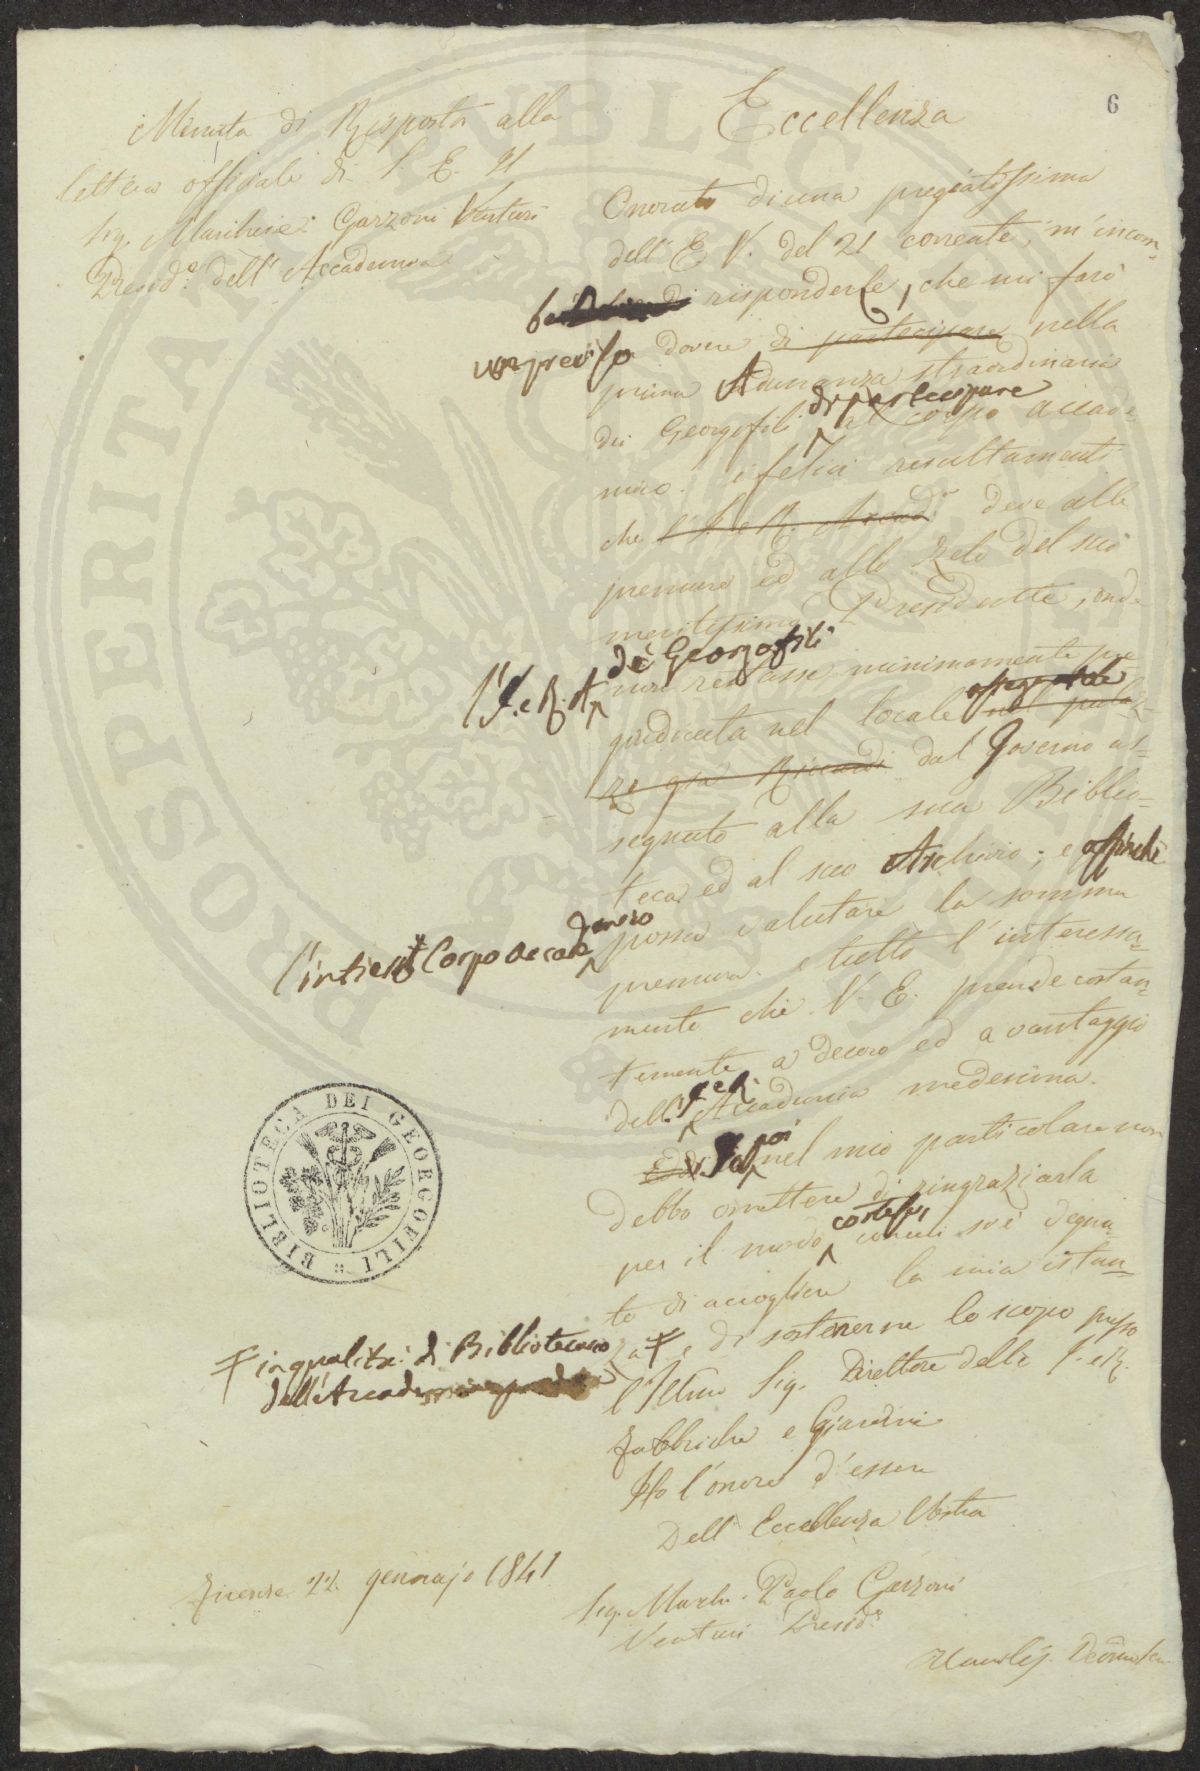 6
Minuta di Risposta alla
lettera officiale di S. E. Il
Sig. Marchese Garzoni Venturi
Presid.e dell' Accademia
Eccellenza
Onorato di una pregiatissima
dell' E. V. del 21 corrente, m' incom-
risponderle, che mi farò
un preciso dovere di partecipare nella
prima Adunanza straordinaria
dei Georgofili di partecipare al corpo accade-
mico i felici resultamenti
che l' I. e R. Accad.a deve alle
premure ed allo zelo del suo
meritissimo Presidente, onde
l' I. e R. A. de' Georgofili non restasse minimamente pre-
giudicata nel locale assegnatole nel palaz-
zo già Riccardi dal Governo as-
segnato alla sua Biblio-
teca ed al suo Archivio; e affinchè
l' intiero Corpo Accademico possa valutare la somma
premura e tutto l' interessa-
mento che V. E. prende costan-
temente a decoro ed a vantaggio
dell' I. e R. Accademia medesima.
poi nel mio particolare non
debbo omettere di ringraziarla
per il modo cortese, con cui si è degna-
to di accogliere la mia istan-
za e di sostenerne lo scopo presso
in qualità di Bibliotecario
dell' Accademia
l' Illmo Sig. Direttore delle I. e R.
Fabbriche e Giardini
Ho l' onore d' essere
Dell' Eccellenza Vostra
Firenze 22 gennajo 1841
Sig. March. Paolo Garzoni
Venturi Presid.e
BIBLIOTECA DEI GEORGOFILI
PROSPERITA
PUBLICA